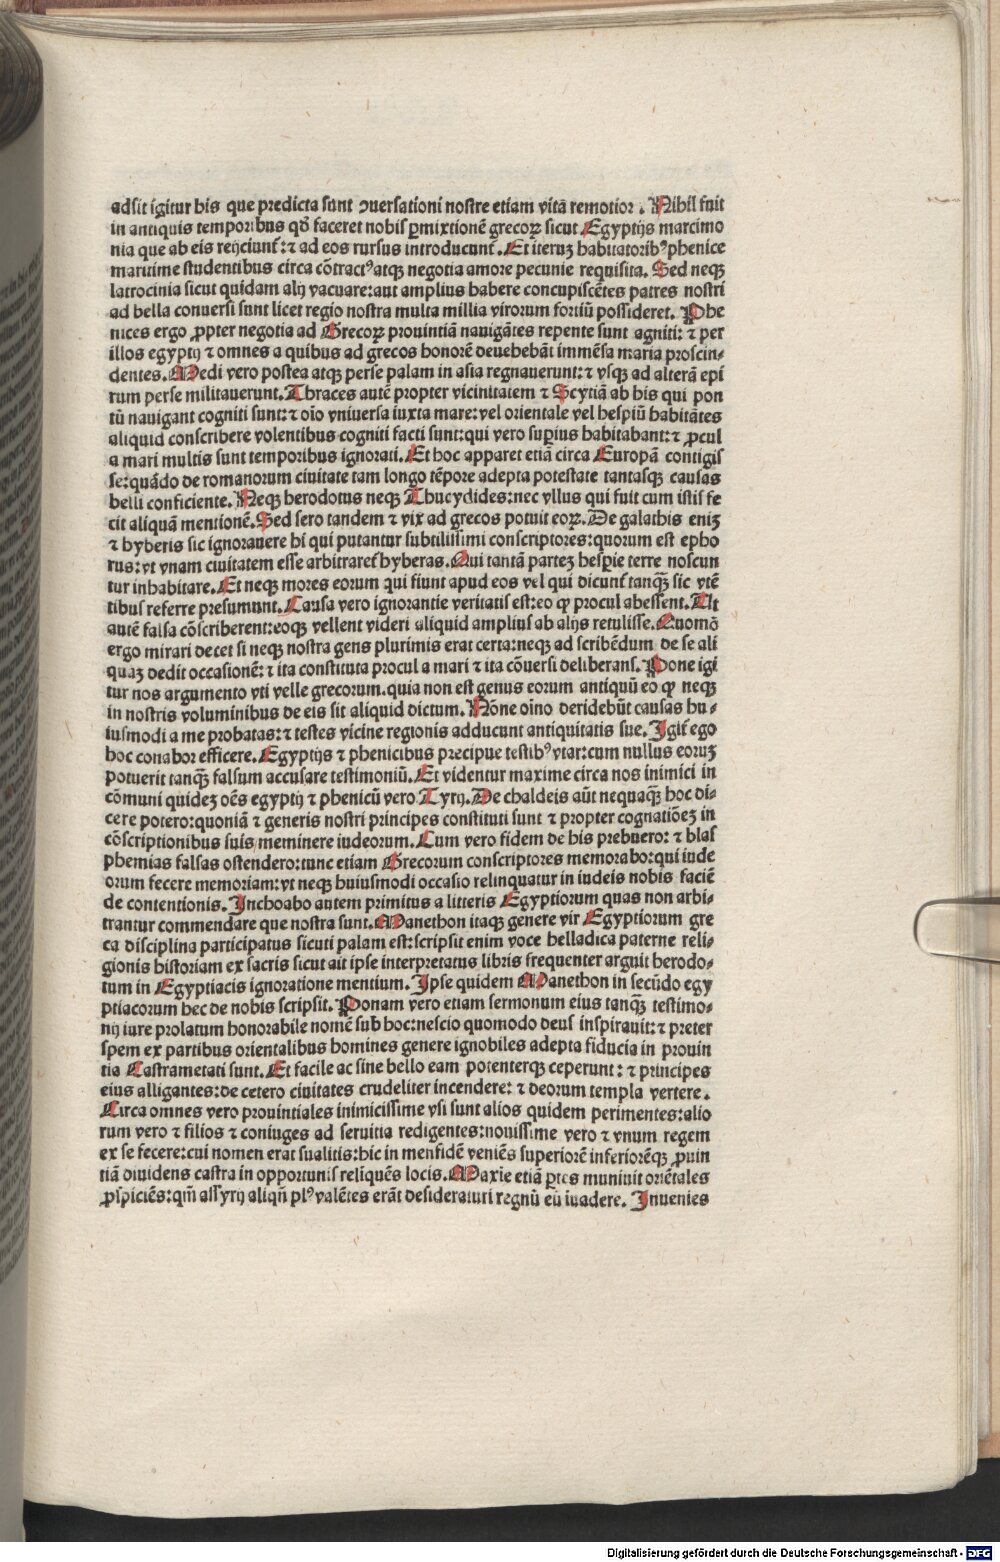 adsit igitur his que predicta sunt ꝯuersationi nostre etiam vitã remotior. Nihil fuit
in antiquis temporibus qđ faceret nobis ꝑmixtionẽ grecoꝝ sicut Egyptijs marcimo
nia que ab eis reijciunt᷑: ⁊ ad eos rursus introducunt᷑. Et iteruȝ habitatoribꝰ phenice
maritime studentibus circa cõtractꝰ atqꝫ negotia amore pecunie requisita. Sed neqꝫ
latrocinia sicut quidam alij vacuare: aut amplius habere concupiscẽtes patres nostri
ad bella conuersi sunt licet regio nostra multa millia virorum fortiũ possideret. Phe
nices ergo ꝓpter negotia ad Grecoꝝ prouintiã nauigãtes repente sunt agniti: ⁊ per
illos egyptij ⁊ omnes a quibus ad grecos honorẽ deuehebãt immẽsa maria proscin-
dentes. Medi vero postea atqꝫ perse palam in asia regnauerunt: ⁊ vsqꝫ ad alterã epi
rum perse militauerunt. Thraces autẽ propter vicinitatem ⁊ Scytiã ab his qui pon
tũ nauigant cogniti sunt: ⁊ oĩo vniuersa iuxta mare: vel orientale vel hespiũ habitãtes
aliquid conscribere volentibus cogniti facti sunt: qui vero suꝑius habitabant: ⁊ ꝓcul
a mari multis sunt temporibus ignorati. Et hoc apparet etiã circa Europã contigis
se: quãdo de romanorum ciuitate tam longo tẽpore adepta potestate tantasqꝫ causas
belli conficiente. Neqꝫ herodotus neqꝫ Thucydides: nec vllus qui fuit cum istis fe
cit aliquã mentionẽ. Sed sero tandem ⁊ vix ad grecos potuit eoꝝ. De galathis eniȝ
⁊ hyberis sic ignorauere hi qui putantur subtilissimi conscriptores: quorum est epho
rus: vt vnam ciuitatem esse arbitraret᷑ hyberas. Qui tantã parteȝ hesꝑie terre noscun
tur inhabitare. Et neqꝫ mores eorum qui fiunt apud eos vel qui dicunt᷑ tanqꝫ̃ sic vtẽ
tibus referre presumunt. Causa vero ignorantie veritatis est: eo ꝙ procul abessent. Ut
autẽ falsa cõscriberent: eoqꝫ vellent videri aliquid amplius ab alijs retulisse. Quomõ
ergo mirari decet si neqꝫ nostra gens plurimis erat certa: neqꝫ ad scribẽdum de se ali
quaȝ dedit occasionẽ: ⁊ ita constituta procul a mari ⁊ ita cõuersi deliberans. Pone igi
tur nos argumento vti velle grecorum. quia non est genus eorum antiquũ eo ꝙ neqꝫ
in nostris voluminibus de eis sit aliquid dictum. Nõne oĩno deridebũt causas hu-
iusmodi a me probatas: ⁊ testes vicine regionis adducunt antiquitatis sue. Igit᷑ ego
hoc conabor efficere. Egyptijs ⁊ phenicibus precipue testibꝰ vtar: cum nullus eoruȝ
potuerit tanqꝫ̃ falsum accusare testimoniũ. Et videntur maxime circa nos inimici in
cõmuni quideȝ oẽs egyptij ⁊ phenicũ vero Tyrij. De chaldeis aũt nequaqꝫ̃ hoc di-
cere potero: quoniã ⁊ generis nostri principes constituti sunt ⁊ propter cognatiõeȝ in
cõscriptionibus suis meminere iudeorum. Cum vero fidem de his prebuero: ⁊ blas
phemias falsas ostendero: tunc etiam Grecorum conscriptores memorabo: qui iude
orum fecere memoriam: vt neqꝫ huiusmodi occasio relinquatur in iudeis nobis faciẽ
de contentionis. Inchoabo autem primitus a litteris Egyptiorum quas non arbi-
trantur commendare que nostra sunt. Manethon itaqꝫ genere vir Egyptiorum gre
ca disciplina participatus sicuti palam est: scripsit enim voce helladica paterne reli-
gionis historiam ex sacris sicut ait ipse interpretatus libris frequenter arguit herodo-
tum in Egyptiacis ignoratione mentium. Ipse quidem Manethon in secũdo egy
ptiacorum hec de nobis scripsit. Ponam vero etiam sermonum eius tanqꝫ̃ testimo-
nij iure prolatum honorabile nomẽ sub hoc: nescio quomodo deus inspirauit: ⁊ preter
spem ex partibus orientalibus homines genere ignobiles adepta fiducia in prouin
tia Castrametati sunt. Et facile ac sine bello eam potenterqꝫ ceperunt: ⁊ principes
eius alligantes: de cetero ciuitates crudeliter incendere: ⁊ deorum templa vertere.
Circa omnes vero prouintiales inimicissime vsi sunt alios quidem perimentes: alio
rum vero ⁊ filios ⁊ coniuges ad seruitia redigentes: nouissime vero ⁊ vnum regem
ex se fecere: cui nomen erat sualitis: hic in menfidẽ veniẽs superiorẽ inferiorẽqꝫ ꝓuin
tiã diuidens castra in opportunis reliquẽs locis. Maxĩe etiã ꝑtes muniuit oriẽtales
ꝓspiciẽs: qm̃ assyrij aliqñ plꝰ valẽtes erãt desideraturi regnũ eũ iuadere. Inuenies
Digitalisierung gefördert durch die Deutsche Forschungsgemeinschaft - DFG